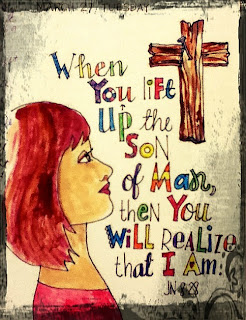 MARCH 27 TUESDAY
When
You lift
Up the
SON
of Man,
then You
Will REALIZE
that I Am:
JN 8:28